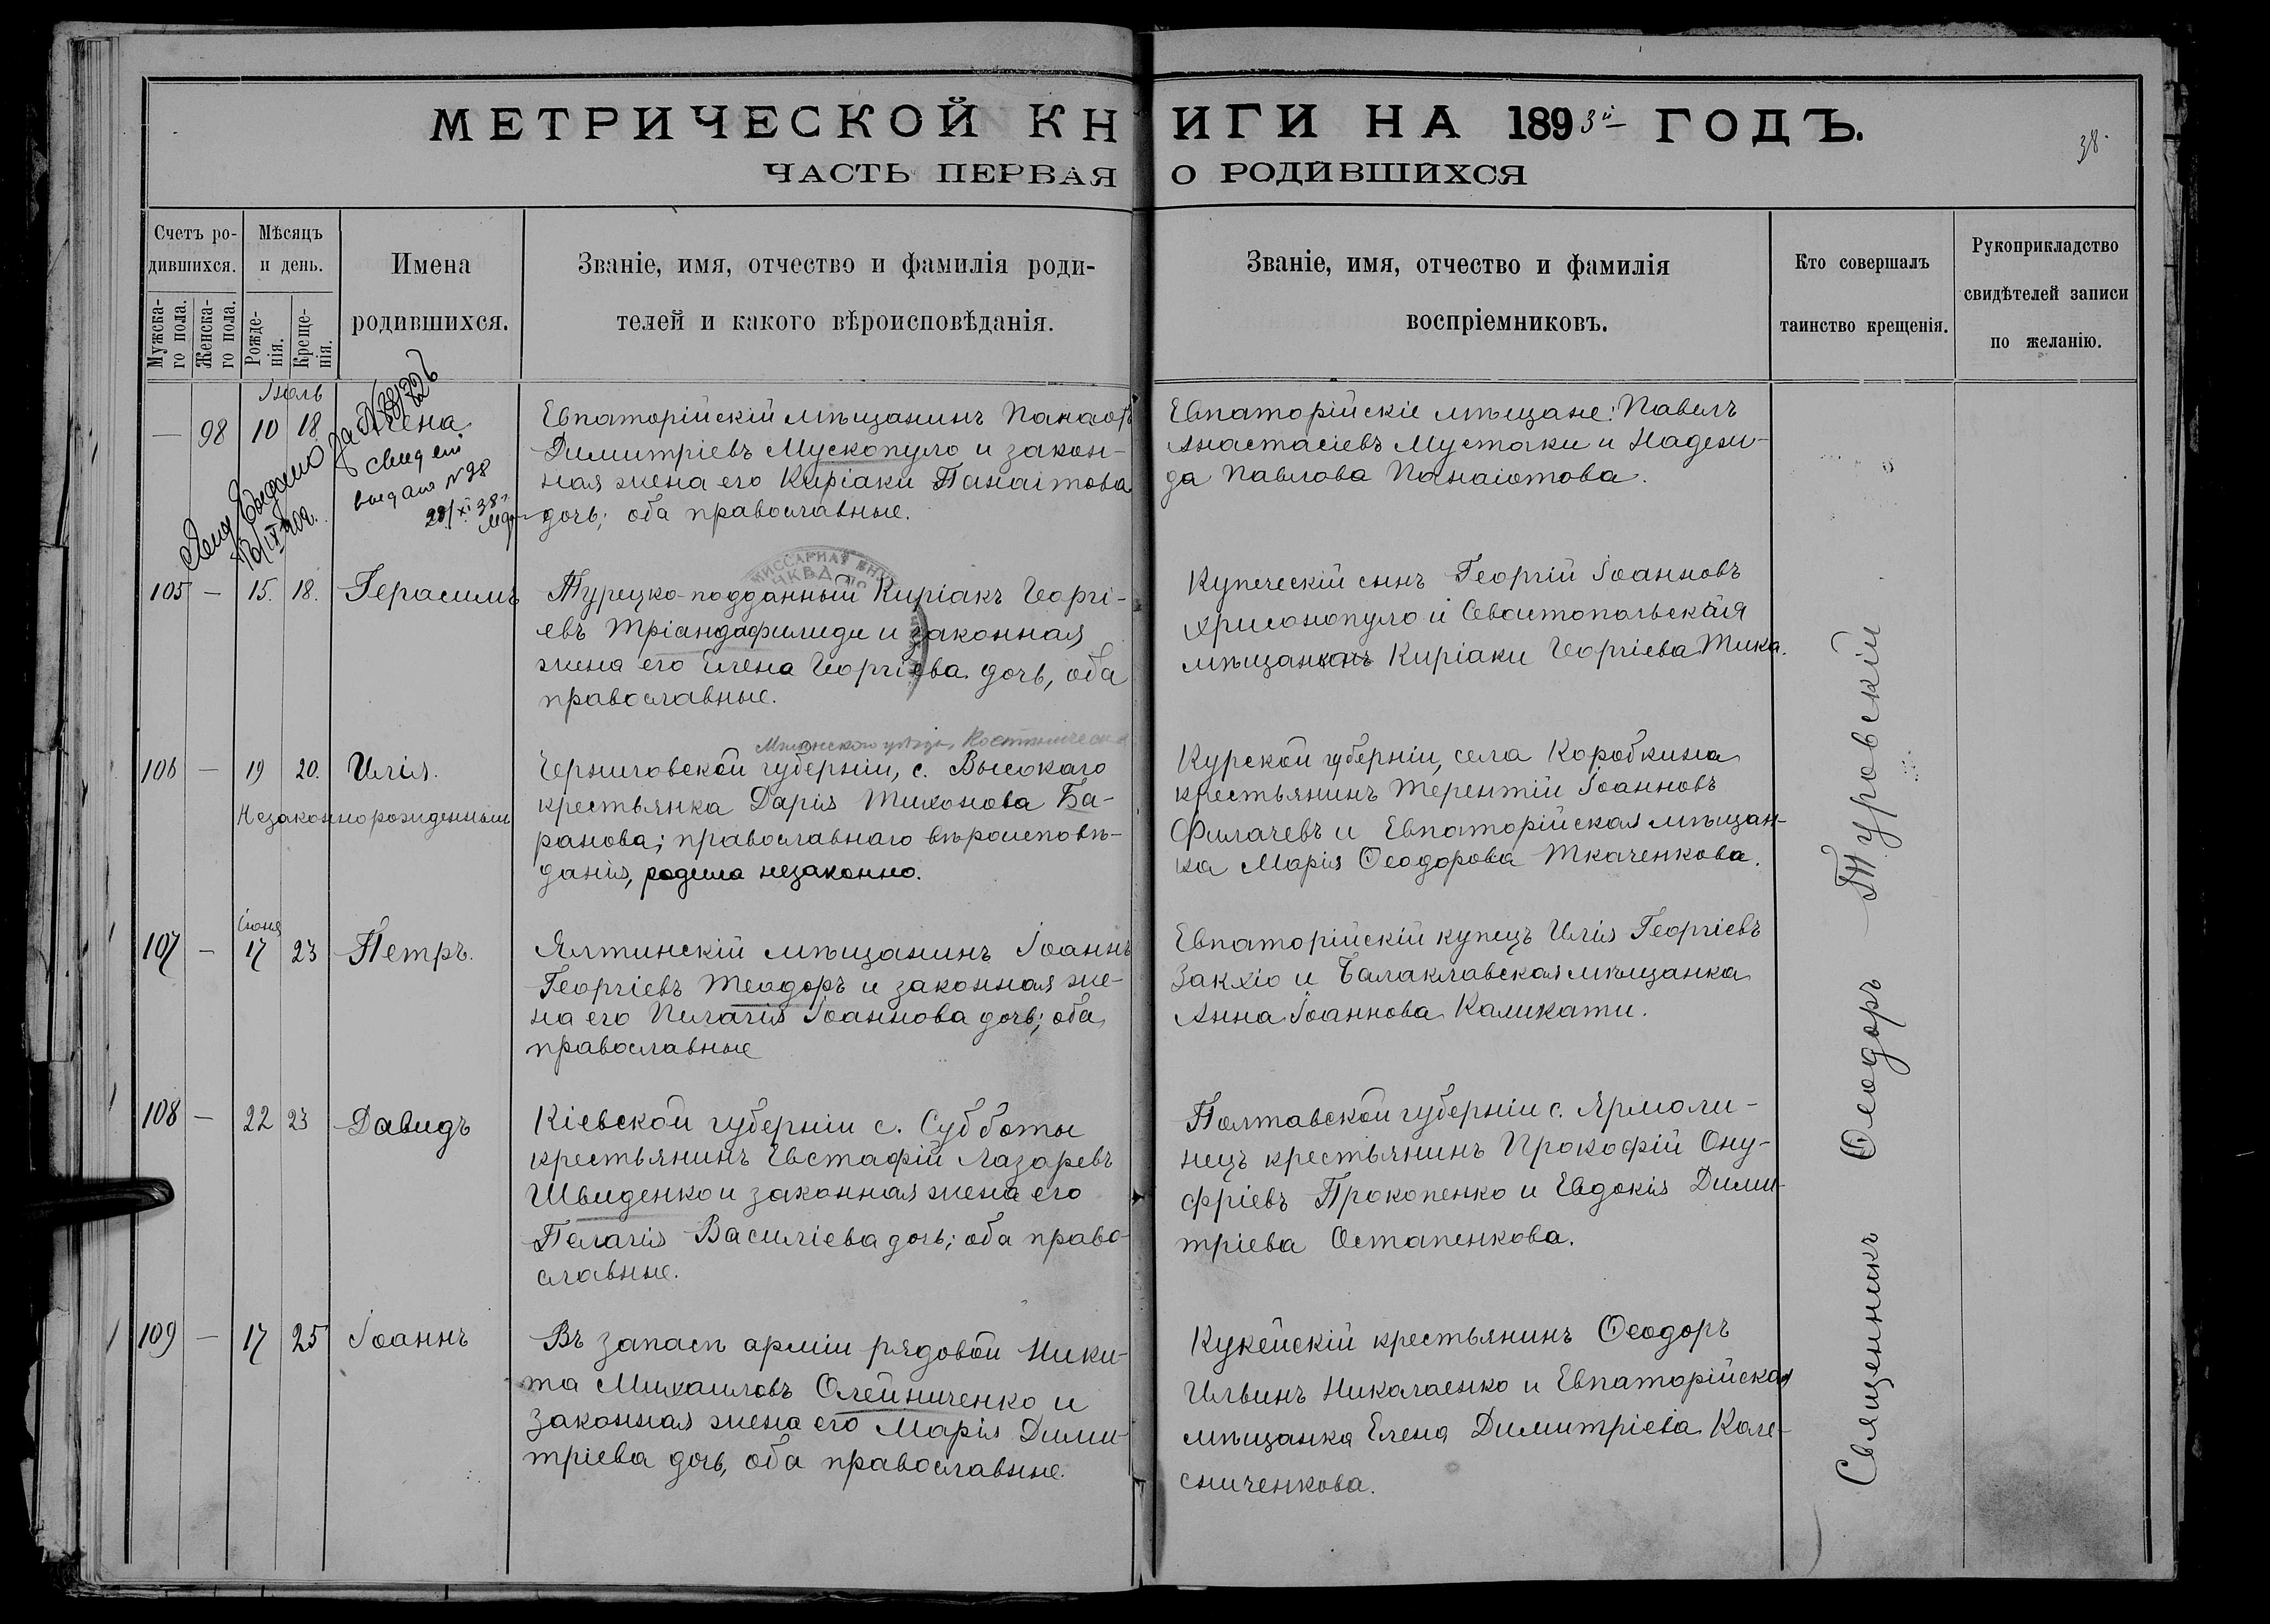 МЕТРИЧЕСКОЙ КНИГИ НА 1893й ГОДЪ.
38.
ЧАСТЬ ПЕРВАЯ О РОДИВШИХСЯ
Счетъ ро-
дившихся.
Мужска-
го пола.
Женска-
го пола.
Мѣсяцъ
и день.
Рожде-
нія.
Креще-
нія.
Имена
родившихся.
Званіе, имя, отчество и фамилія роди-
телей и какого вѣроисповѣданія.
Званіе, имя, отчество и фамилія
воспріемниковъ.
Кто совершалъ
таинство крещенія.
Рукоприкладство
свидѣтелей записи
по желанію.
Іюль
— 98 10 18 Елена
выдано №98
28/XI 38г.
Евпаторійскій мѣщанинъ Панаіотъ
Димитріевъ Мускопуло и закон-
ная жена его Киріаки Панаіотова
дочь; оба православные.
Евпаторійскіе мѣщане: Павелъ
Анастасіевъ Мустаки и Надеж-
да Павлова Панаіотова.
105 — 15. 18. Герасимъ
Турецко-подданный Киріакъ Георгі-
евъ Тріандафилиди и законная
жена его Елена Георгіева дочь, оба
православные.
Купеческій сынъ Георгій Іоанновъ
Хрисонопуло и Севастопольская
мѣщанка Киріаки Георгіева Тика.
106 — 19 20. Илія.
Незаконнорожденный
Черниговской губерніи, с. Высокаго
крестьянка Дарія Тихонова Ба-
ранова; православнаго вѣроисповѣ-
данія, родила незаконно.
Курской губерніи, села Коробкина
крестьянинъ Терентій Іоанновъ
Филачевъ и Евпаторійская мѣщан-
ка Марія Ѳеодорова Ткаченкова.
Іюня
107 — 17 23 Петръ.
Ялтинскій мѣщанинъ Іоаннъ
Георгіевъ Теодоръ и законная же-
на его Пелагія Іоаннова дочь; оба
православные
Евпаторійскій купецъ Илія Георгіевъ
Закхіо и Балаклавская мѣщанка
Анна Іоаннова Каликати.
108 — 22 23 Давидъ
Кіевской губерніи с. Субботы
крестьянинъ Евстафій Лазаревъ
Швиденко и законная жена его
Пелагія Василіева дочь; оба право-
славные.
Полтавской губерніи с. Ярмоли-
нецъ крестьянинъ Прокофій Ону-
фріевъ Прокопенко и Евдокія Дими-
тріева Остапенкова.
109 — 17 25 Іоаннъ
Въ запасѣ арміи рядовой Ники-
та Михаиловъ Олейниченко и
законная жена его Марія Дими-
тріева дочь, оба православные.
Кукейскій крестьянинъ Ѳеодоръ
Ильинъ Николаенко и Евпаторійская
мѣщанка Елена Димитріева Коле-
сниченкова.
Священникъ Ѳеодоръ Туровскій